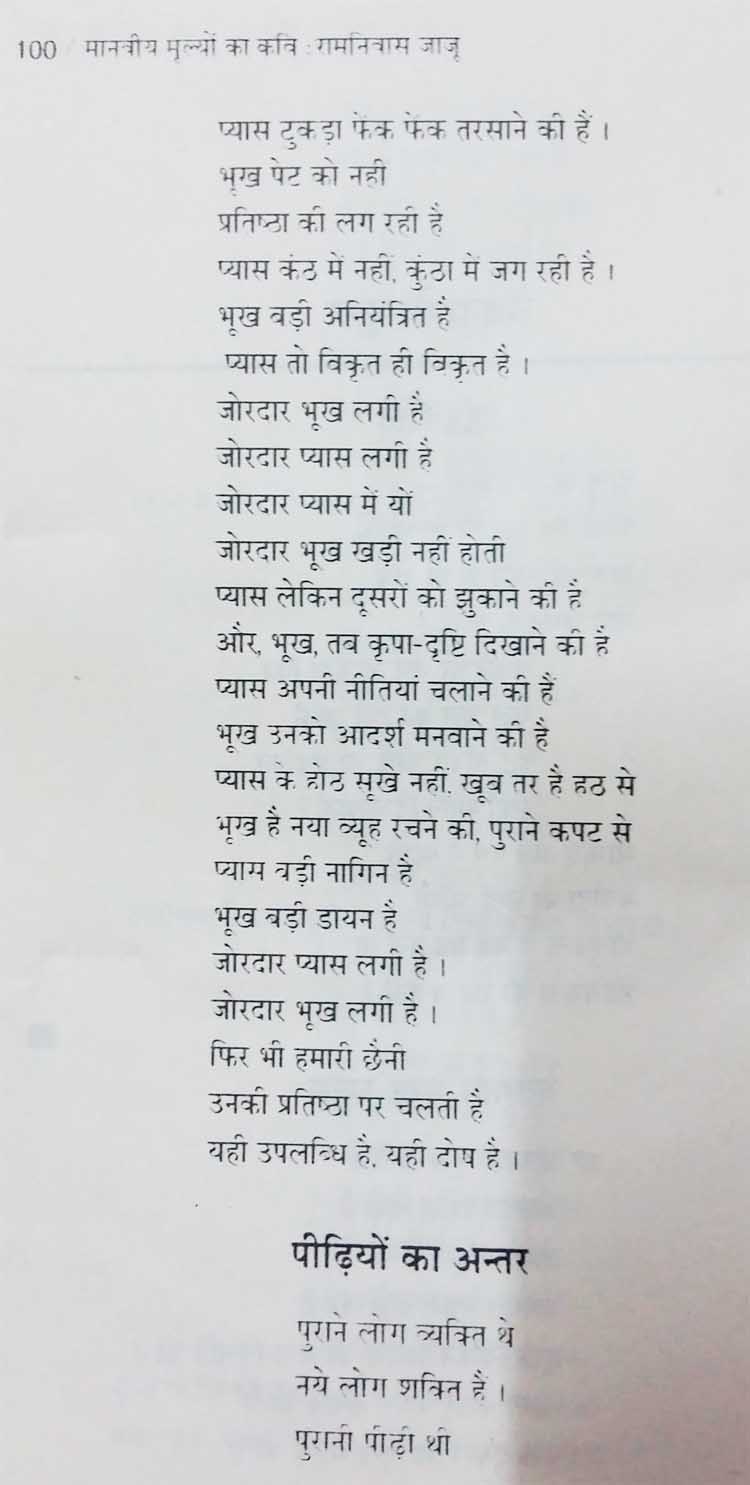 100 मानवीय मूल्यों का कवि : रामनिवास जाजू
प्यास टुकड़ा फेंक फेंक तरसाने की है ।
भूख पेट को नही
प्रतिष्ठा की लग रही है
प्यास कंठ में नहीं, कुंठा में जग रही है ।
भूख बड़ी अनियंत्रित है
प्यास तो विकृत ही विकृत है ।
जोरदार भूख लगी है
जोरदार प्यास लगी है
जोरदार प्यास में यों
जोरदार भूख खड़ी नहीं होती
प्यास लेकिन दूसरों को झुकाने की है
और, भूख, तब कृपा-दृष्टि दिखाने की है
प्यास अपनी नीतियां चलाने की है
भूख उनको आदर्श मनवाने की है
प्यास के होठ सूखे नहीं, खूब तर है हठ से
भूख है नया व्यूह रचने की, पुराने कपट से
प्यास बड़ी नागिन है
भूख बड़ी डायन है
जोरदार प्यास लगी है ।
जोरदार भूख लगी है ।
फिर भी हमारी छैनी
उनकी प्रतिष्ठा पर चलती है
यही उपलब्धि है, यही दोष है ।
पीढ़ियों का अन्तर
पुराने लोग व्यक्ति थे
नये लोग शक्ति हैं ।
पुरानी पीढ़ी थी